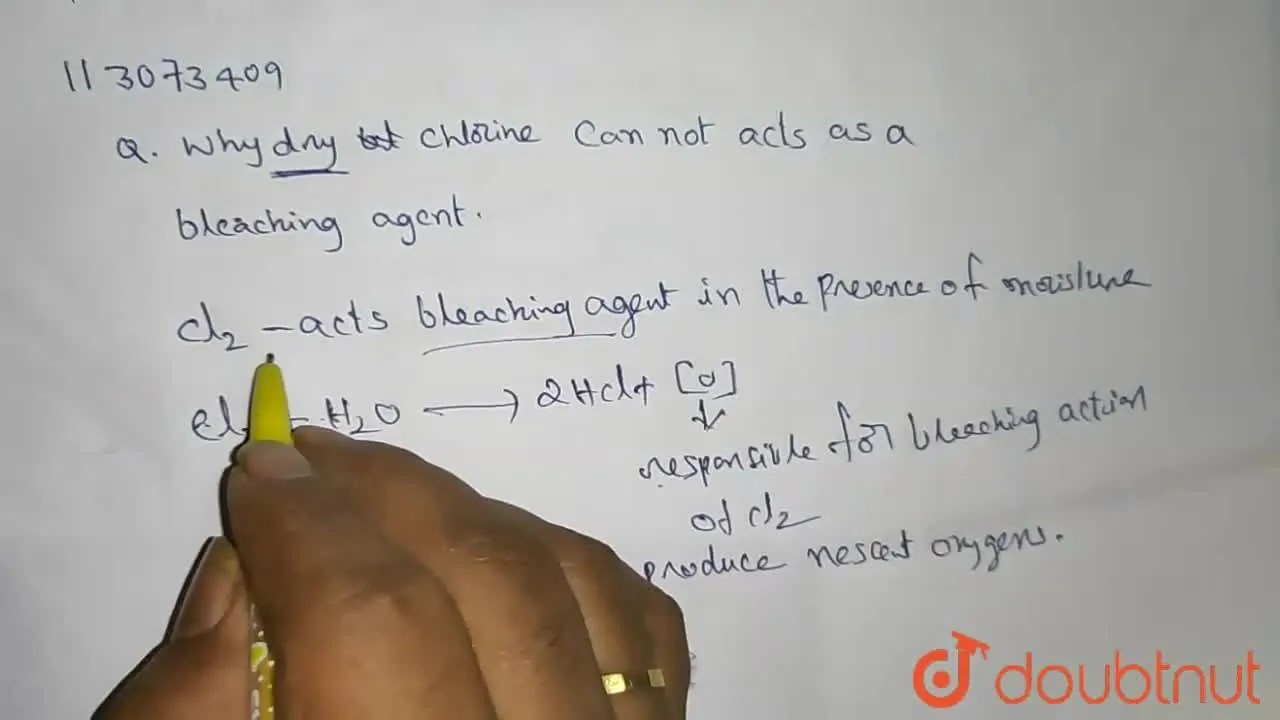 113073409
Q. Why dry chlorine can not acts as a
bleaching agent.
Cl2 - acts bleaching agent in the presence of moisture
H2O → 2HCl + [O]
responsible for bleaching action
of Cl2
produce nescent oxygens.
doubtnut